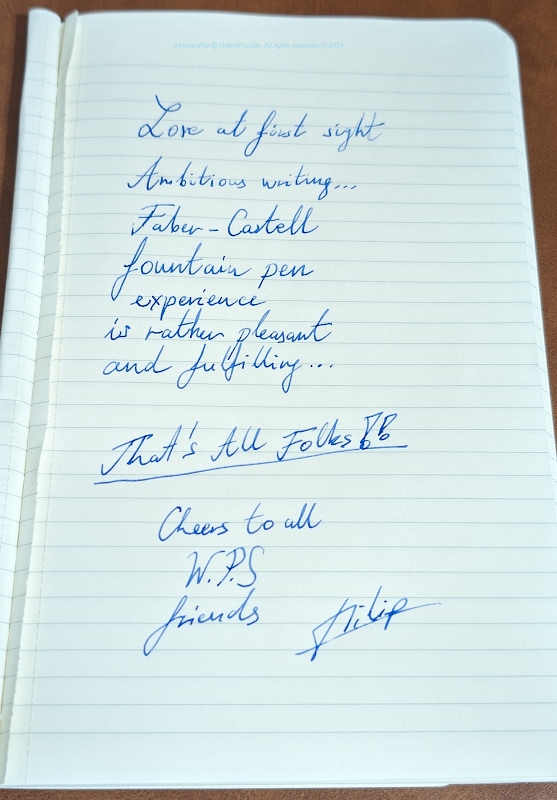 Love at first sight
Ambitious writing...
Faber-Castell
fountain pen
experience
is rather pleasant
and fulfilling...
That's All Folks!!
Cheers to all
W.P.S
friends
Filip